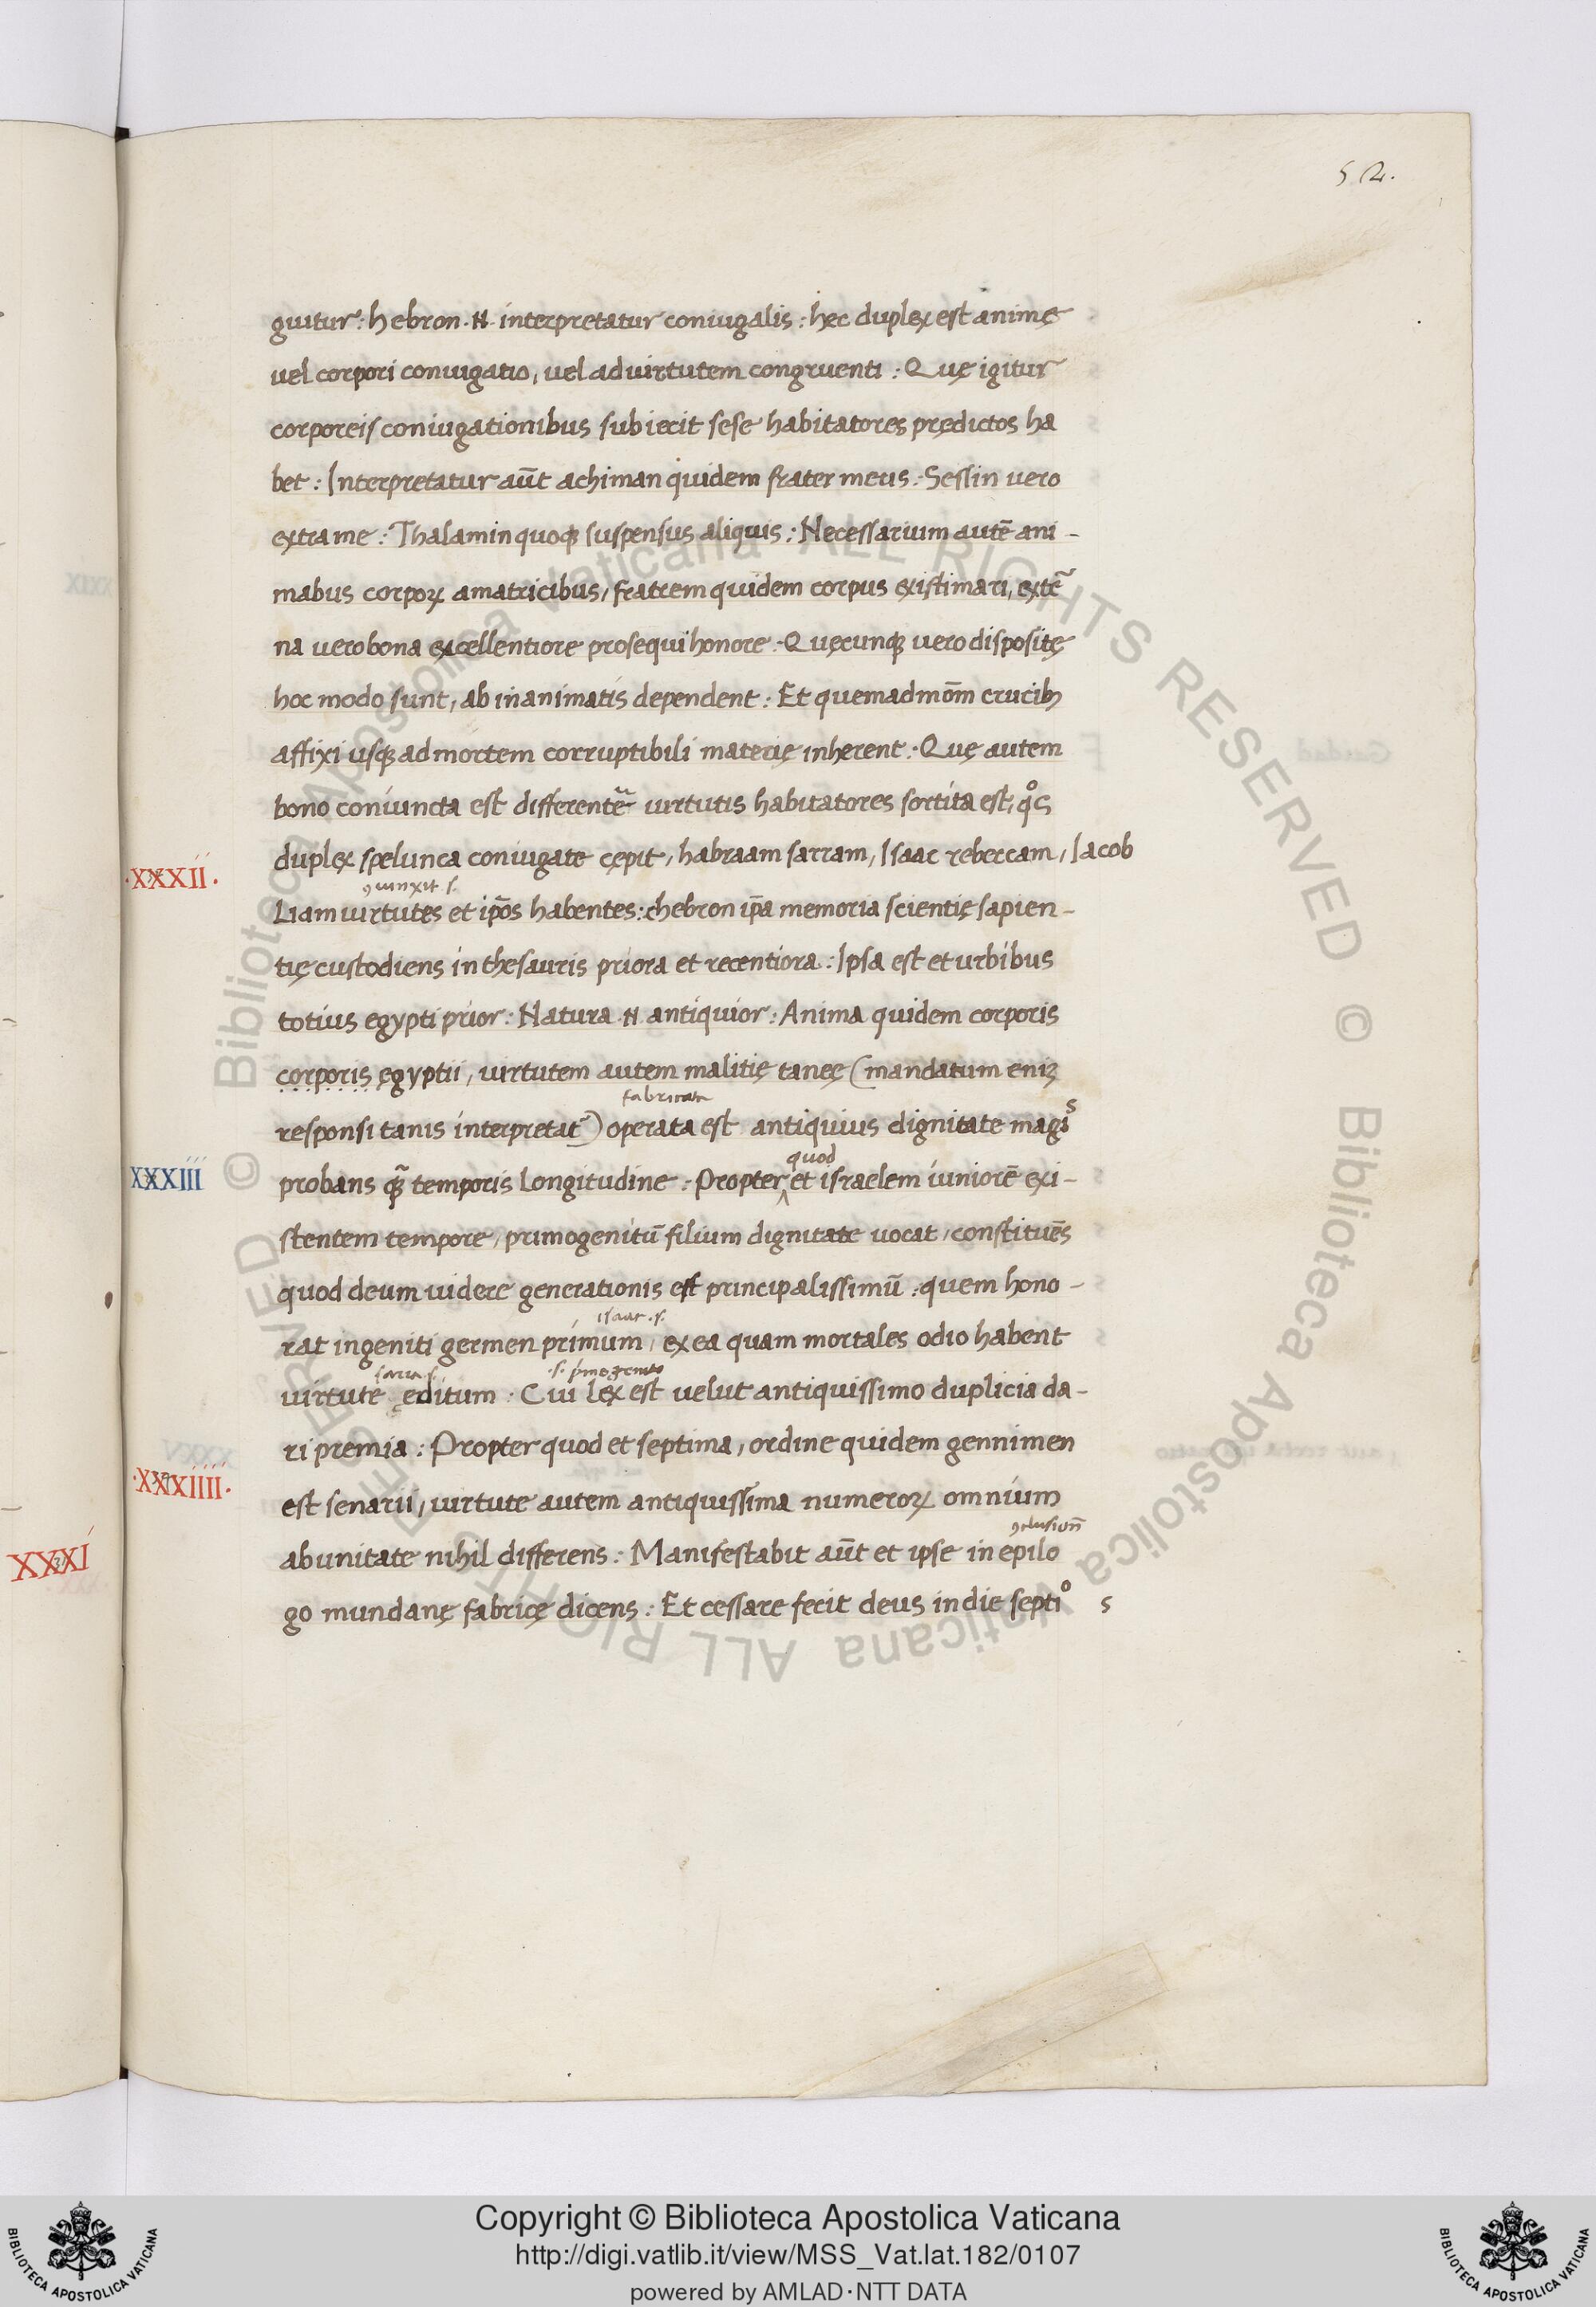 52.
guitur: hebron .N. interpretatur coniugalis: hec duplex est animę
uel corpori coniugatio, uel ad uirtutem congruenti: Quę igitur
corporeis coniugationibus subiecit sese habitatores prędictos ha
bet: Interpretatur aūt achiman quidem frater meus: Sessin uero
extra me: Thalamin quoqꝫ suspensus aliquis: Necessarium autē ani-
mabus corpoꝝ amatricibus, fratrem quidem corpus existimari, extē
na uero bona excellentiore prosequi honore: Quęcunqꝫ uero dispositę
hoc modo sunt, ab inanimatis dependent: Et quemadmōm crucibꝫ
affixi usqꝫ ad mortem corruptibili materię inherent: Quę autem
bono coniuncta est differentē uirtutis habitatores sortita est, qͦs
duplex spelunca coniugate cępit, habraam sarram, Isaac rebeccam, Iacob
XXXII.
ꝯiunxit s.
Liam uirtutes et ip̄os habentes: chebron ip̄a memoria scientię sapien-
tię custodiens in thesauris priora et recentiora: Ipsa est et urbibus
totius egypti prior: Natura .N. antiquior: Anima quidem corporis
corporis ęgyptii, uirtutem autem malitię taneę (mandatum eniꝫ
fabricata
responsi tanis interpretat᷑) operata est antiquius dignitate magis
XXXIII
quod
probans qꝫ̄ temporis longitudine: Propter et israelem iuniorē exi-
stentem tempore, primogenitū filium dignitate uocat, constituēs
quod deum uidere generationis est principalissimū: quem hono-
isaac .s.
rat ingeniti germen primum, ex ea quam mortales odio habent
sarra s. .s. pͥmogenito
uirtute ęditum: Cui lex est uelut antiquissimo duplicia da-
ri premia: Propter quod et septima, ordine quidem gennimen
XXXIIII.
est senarii, uirtute autem antiquissima numeroꝝ omnium
XXXI
ꝯclusioñ
ab unitate nihil differens: Manifestabit aūt et ipse in epilo
go mundanę fabricę dicens: Et cessare fecit deus in die septiͦ s
© Biblioteca Apostolica Vaticana ALL RIGHTS RESERVED © Biblioteca Apostolica Vaticana ALL RIGHTS RESERVED
BIBLIOTECA APOSTOLICA VATICANA
Copyright © Biblioteca Apostolica Vaticana
http://digi.vatlib.it/view/MSS_Vat.lat.182/0107
powered by AMLAD·NTT DATA
BIBLIOTECA APOSTOLICA VATICANA